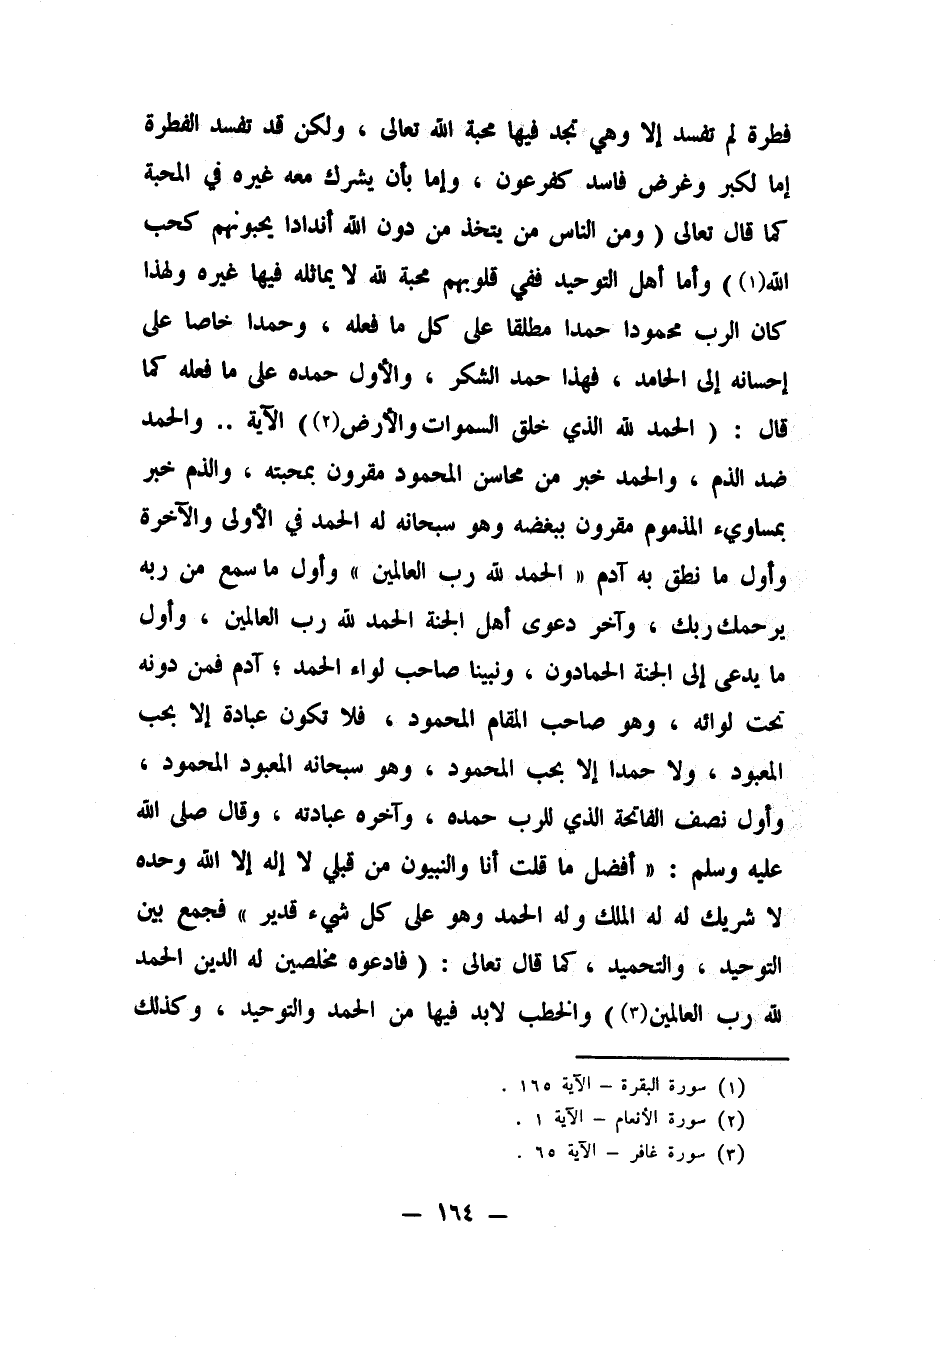 فطرة لم تفسد إلا وهي تجد فيها محبة الله تعالى ، ولكن قد تفسد الفطرة
إما لكبر وغرض فاسد كفرعون ، وإما بأن يشرك معه غيره في المحبة
كما قال تعالى ( ومن الناس من يتخذ من دون الله أندادا يحبونهم كحب
الله(١) ) وأما أهل التوحيد ففي قلوبهم محبة لله لا يماثله فيها غيره ولهذا
كان الرب محمودا حمدا مطلقا على كل ما فعله ، وحمدا خاصا على
إحسانه إلى الحامد ، فهذا حمد الشكر ، والأول حمده على ما فعله كما
قال : ( الحمد لله الذي خلق السموات والأرض(٢) ) الآية .. والحمد
ضد الذم ، والحمد خبر من محاسن المحمود مقرون بمحبته ، والذم خبر
بمساويء المذموم مقرون ببغضه وهو سبحانه له الحمد في الأولى والآخرة
وأول ما نطق به آدم « الحمد لله رب العالمين » وأول ما سمع من ربه
يرحمك ربك ، وآخر دعوى أهل الجنة الحمد لله رب العالمين ، وأول
ما يدعى إلى الجنة الحمادون ، ونبينا صاحب لواء الحمد ؛ آدم فمن دونه
تحت لوائه ، وهو صاحب المقام المحمود ، فلا تكون عبادة إلا بحب
المعبود ، ولا حمدا إلا بحب المحمود ، وهو سبحانه المعبود المحمود ،
وأول نصف الفاتحة الذي للرب حمده ، وآخره عبادته ، وقال صلى الله
عليه وسلم : « أفضل ما قلت أنا والنبيون من قبلي لا إله إلا الله وحده
لا شريك له له الملك وله الحمد وهو على كل شيء قدير » فجمع بين
التوحيد ، والتحميد ، كما قال تعالى : ( فادعوه مخلصين له الدين الحمد
لله رب العالمين(٣) ) والخطب لابد فيها من الحمد والتوحيد ، وكذلك
(١) سورة البقرة – الآية ١٦٥ .
(٢) سورة الأنعام – الآية ١ .
(٣) سورة غافر – الآية ٦٥ .
— ١٦٤ —